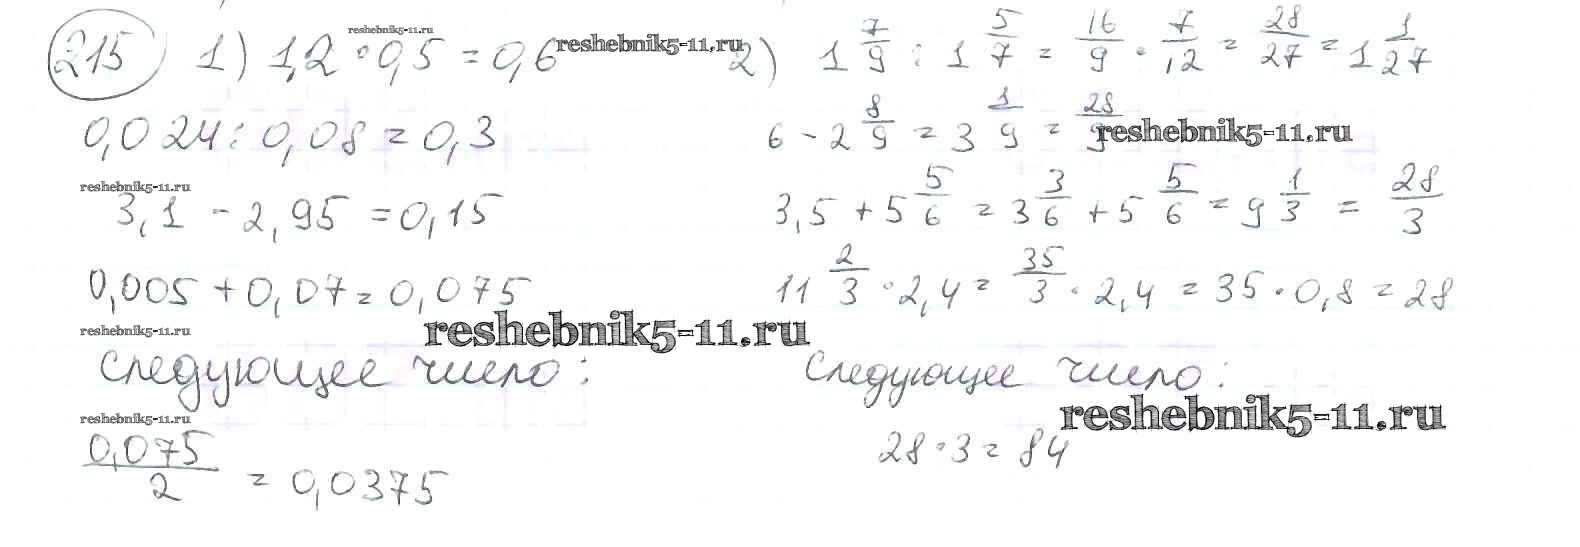 215 1) 1,2 · 0,5 = 0,6
reshebnik5-11.ru
0,024 : 0,08 = 0,3
reshebnik5-11.ru
3,1 - 2,95 = 0,15
0,005 + 0,07 = 0,075
reshebnik5-11.ru
reshebnik5-11.ru
Следующее число:
reshebnik5-11.ru
0,075/2 = 0,0375
reshebnik5-11.ru
2) 1 7/9 : 1 5/7 = 16/9 · 7/12 = 28/27 = 1 1/27
6 - 2 8/9 = 3 1/9 = 28/9
reshebnik5-11.ru
3,5 + 5 5/6 = 3 3/6 + 5 5/6 = 9 1/3 = 28/3
11 2/3 · 2,4 = 35/3 · 2,4 = 35 · 0,8 = 28
Следующее число:
reshebnik5-11.ru
28 · 3 = 84